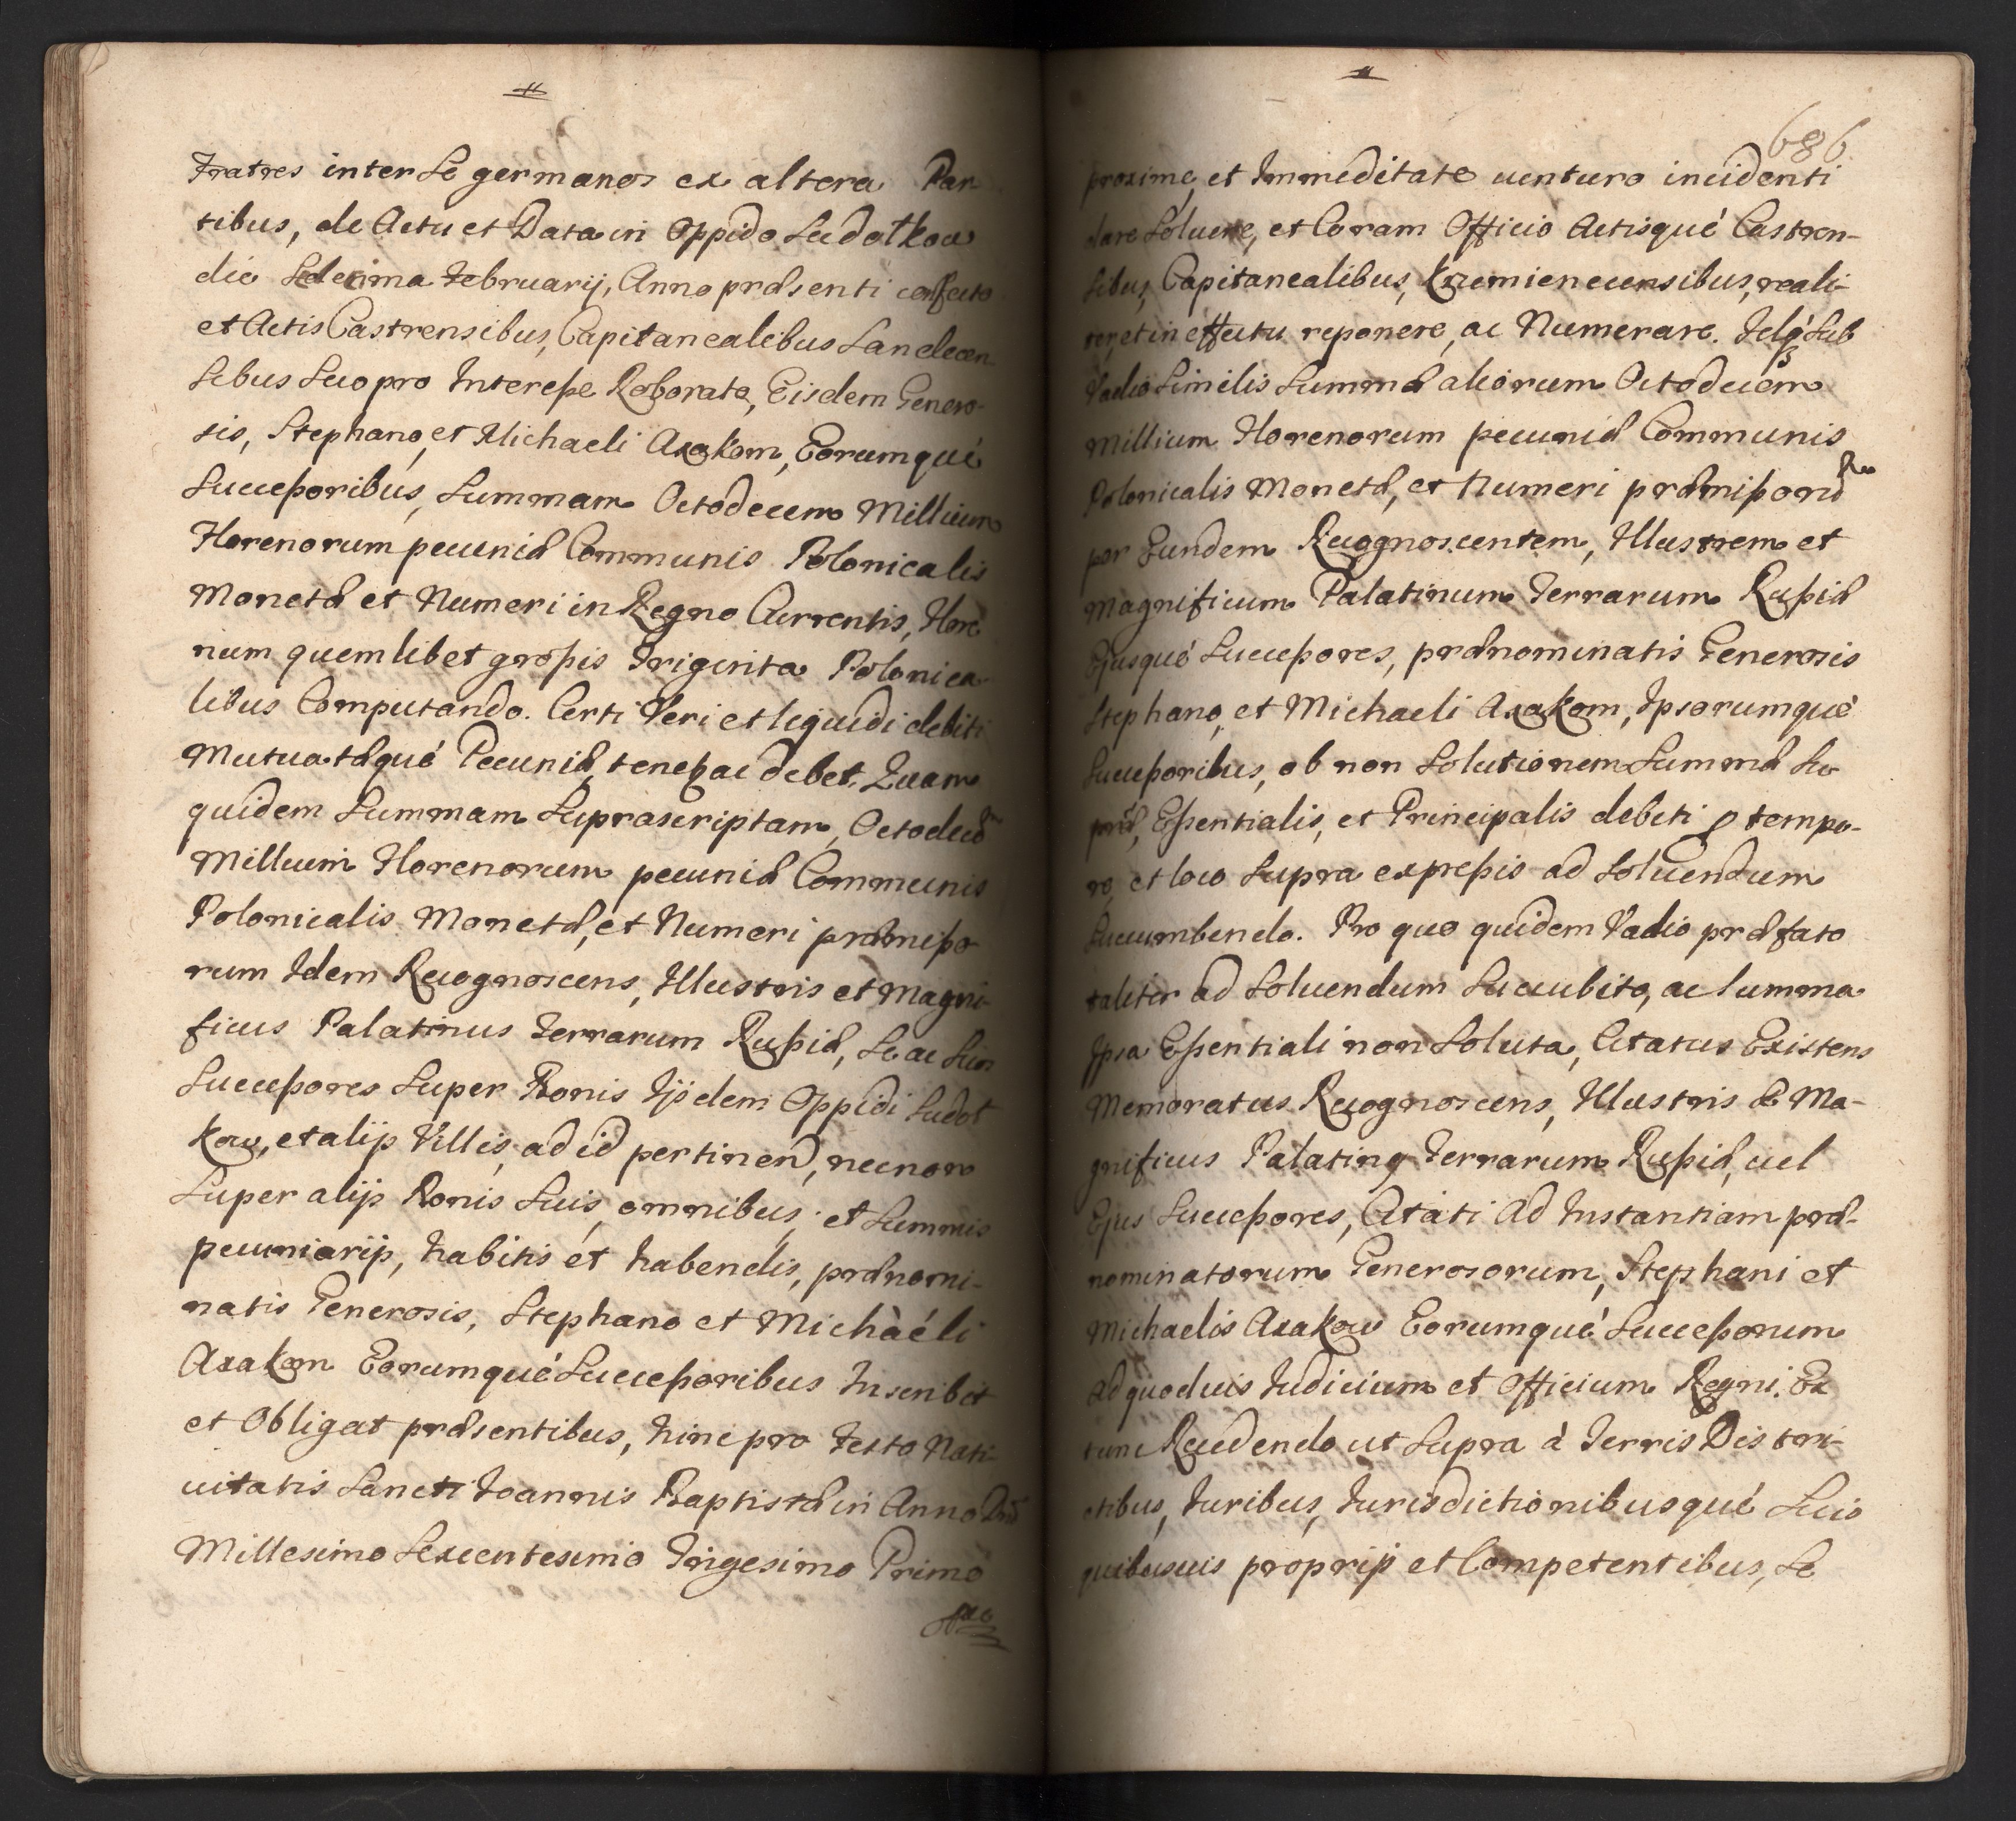 Fratres inter Se germanos ex altera Par
tibus, de Actu et Data in Oppido Sudothow
die Sedecima Februarij, Anno præsenti confecto
et Actis Castrensibus, Capitanealibus Sandecen
sibus Suo pro Interesse Roborato, Eisdem Genero-
sis, Stephano, et Michaeli Axakom, Eorumqué
Successoribus, Summam Octodecem Millium
Florenorum pecuniæ Communis Polonicalis
Monetæ et Numeri in Regno Currentis, Flore
num quemlibet grossis Triginta Polonica-
libus Computando. Certi Veri et liquidi debiti
Mutuatæqué Pecuniæ, tenetur ac debet. Quam
quidem Summam Suprascriptam, Octodecem
Millium Florenorum pecuniæ Communis
Polonicalis Monetæ, et Numeri præmisso
rum Idem Recognoscens, Illustris et Magni-
ficus Palatinus Terrarum Russiæ, Se ac Suos
Successores Super Bonis Ijsdem Oppidi Sudot
kow, et alijs Villis, ad id pertinen, necnon
Super alijs Bonis Suis, omnibus, et Summis
pecuniarijs, habitis et habendis, prænomi-
natis Generosis, Stephano et Michàéli
Axakom Eorumqué Successoribus Inscribit
et Obligat præsentibus, hinc pro Festo Nati-
uitatis Sancti Joannis Baptistæ in Anno Dni
Millesimo Sexcentesimo Trigesimo Primo
pxo
686
proxime, et Immeditate uenturo incidenti
dare Soluere, et Coram Officio Actisqué Castren-
sibus, Capitanealibus, Krzemienecensibus, reali-
ter, et in effectu reponere, ac Numerare. Idq Sub
Vadio Similis Summæ aliorum Octodecem
Millium Florenorum pecuniæ Communis
Polonicalis Monetæ, et Numeri præmissorum
per Eundem Recognoscentem, Illustrem et
Magnificum Palatinum Terrarum Russiæ
Ejusqué Successores, prænominatis Generosis
Stephano, et Michaeli Axakom, Ipsorumqué
Successoribus, ob non Solutionem Summæ Su
præ, Essentialis, et Principalis debiti p tempo-
re, et loco Supra expressis ad Soluendum
Succumbendo. Pro quo quidem Vadio præfato
taliter ad Soluendum Succubito, ac Summa
Ipsa Essentiali non Soluta, Citatus Existens
Memoratus Recognoscens, Illustris & Ma-
gnificus Palatinq Terrarum Russiæ, uel
Ejus Successores, Citati Ad Instantiam præ-
nominatorum Generosorum, Stephani et
Michaelis Axakow Eorumqué Successorum
Ad quoduis Judicium et Officium Regni. Ex
tunc Recedendo ut Supra à Terris Distri-
ctibus, Juribus, Jurisdictionibusqué Suis
quibusuis proprijs et Competentibus, Se